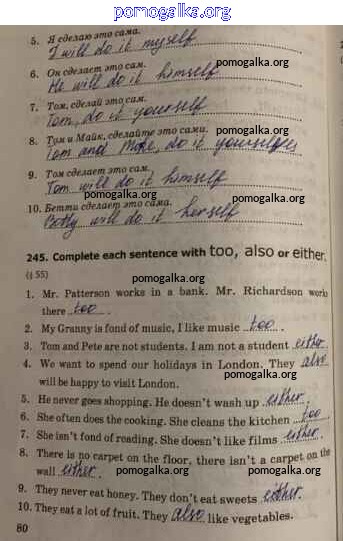 pomogalka.org
5. Я сделаю это сама.
I will do it myself
6. Он сделает это сам. pomogalka.org
He will do it himself
7. Том, сделай это сам.
Tom, do it yourself
8. Том и Майк, сделайте это сами. pomogalka.org
Tom and Mike, do it yourselves
9. Том сделает это сам.
Tom will do it himself pomogalka.org
10. Бетти сделает это сама.
Betty will do it herself
pomogalka.org
245. Complete each sentence with too, also or either.
(§ 55) pomogalka.org
1. Mr. Patterson works in a bank. Mr. Richardson works
there too pomogalka.org
2. My Granny is fond of music, I like music too.
3. Tom and Pete are not students. I am not a student either
4. We want to spend our holidays in London. They also
will be happy to visit London. pomogalka.org
5. He never goes shopping. He doesn't wash up either.
6. She often does the cooking. She cleans the kitchen too
7. She isn't fond of reading. She doesn't like films either.
8. There is no carpet on the floor, there isn't a carpet on the
wall either. pomogalka.org pomogalka.org
9. They never eat honey. They don't eat sweets either.
10. They eat a lot of fruit. They also like vegetables.
80 pomogalka.org